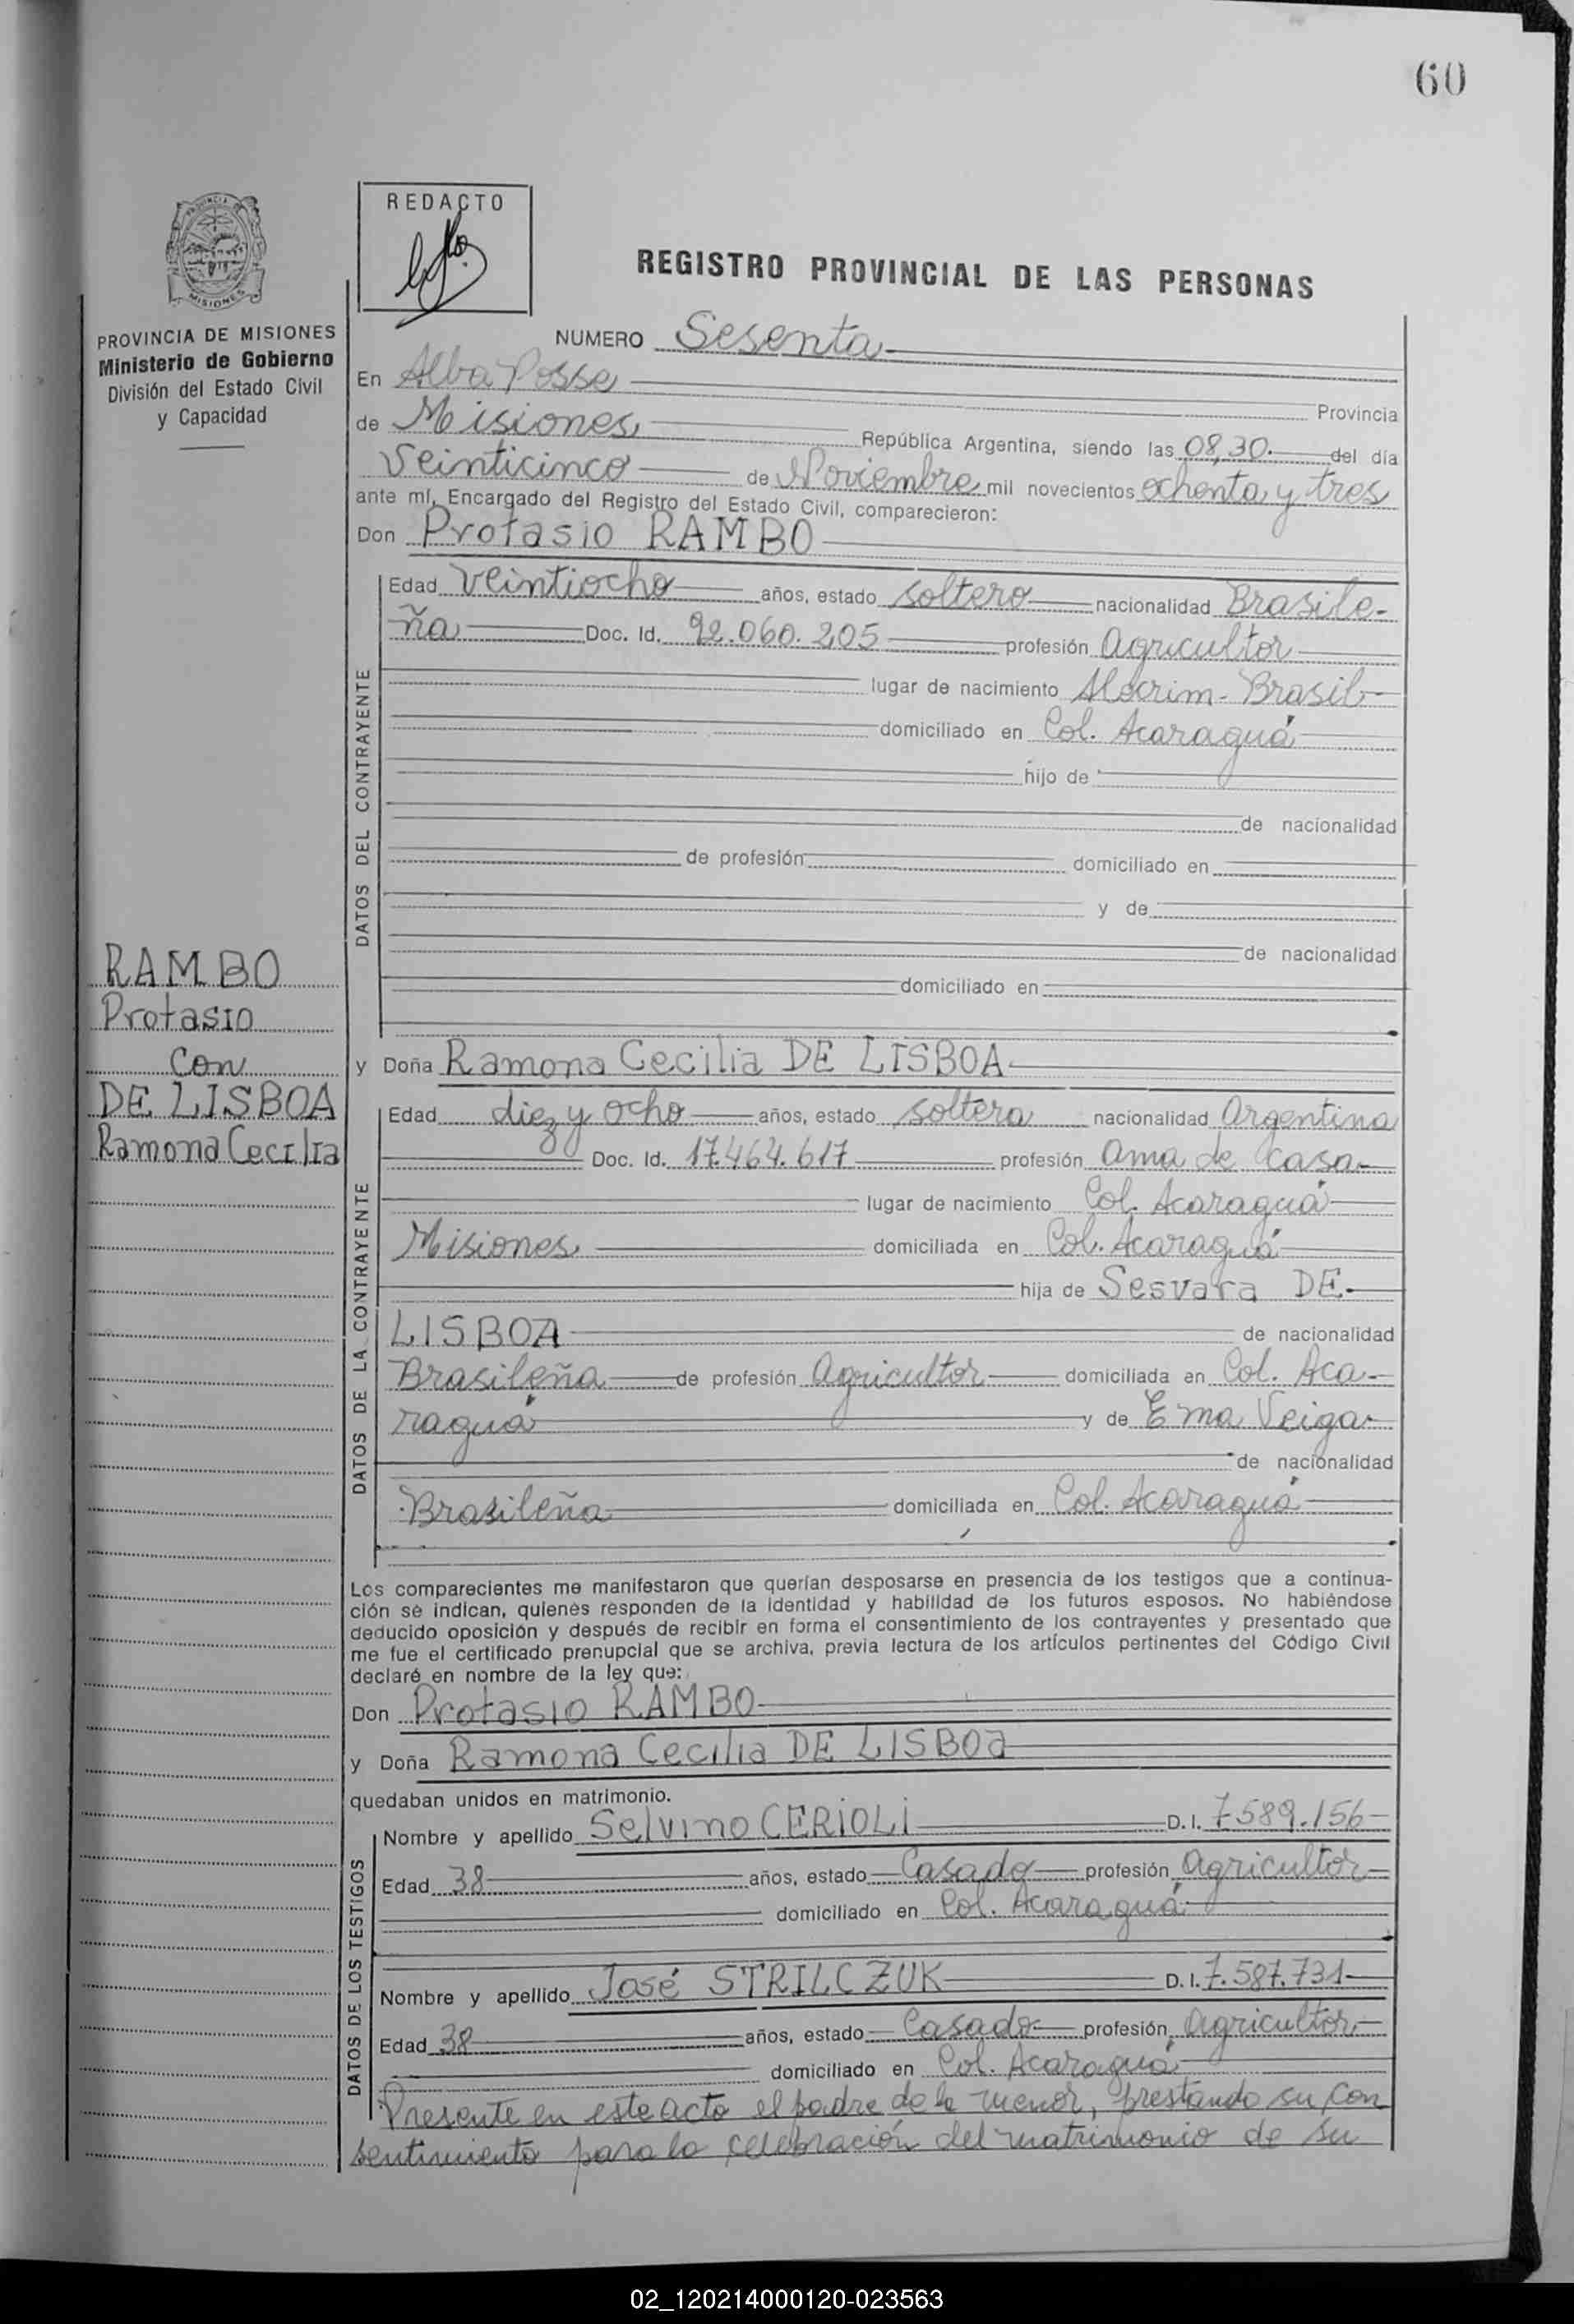 60
REDACTO
REGISTRO PROVINCIAL DE LAS PERSONAS
PROVINCIA DE MISIONES
Ministerio de Gobierno
División del Estado Civil
y Capacidad
NUMERO Sesenta
En Alba Posse
Provincia
de Misiones República Argentina, siendo las 08,30. del día
Veinticinco de Noviembre mil novecientos ochenta y tres
ante mí, Encargado del Registro del Estado Civil, comparecieron:
Don Protasio RAMBO
DATOS DEL CONTRAYENTE
Edad veintiocho años, estado soltero nacionalidad Brasile-
ña Doc. Id. 92.060.205 profesión Agricultor
lugar de nacimiento Alecrim - Brasil
domiciliado en Col. Acaraguá
hijo de
de nacionalidad
de profesión domiciliado en
y de
de nacionalidad
domiciliado en
RAMBO
Protasio
con
DE LISBOA
Ramona Cecilia
y Doña Ramona Cecilia DE LISBOA
DATOS DE LA CONTRAYENTE
Edad diez y ocho años, estado soltera nacionalidad Argentina
Doc. Id. 17.464.617 profesión Ama de casa
lugar de nacimiento Col. Acaraguá
Misiones domiciliada en Col. Acaraguá
hija de Sesvara DE
LISBOA de nacionalidad
Brasileña de profesión Agricultor domiciliada en Col. Aca-
raguá y de Ema Veiga
de nacionalidad
Brasileña domiciliada en Col. Acaraguá
Los comparecientes me manifestaron que querían desposarse en presencia de los testigos que a continua-
ción se indican, quienes responden de la identidad y habilidad de los futuros esposos. No habiéndose
deducido oposición y después de recibir en forma el consentimiento de los contrayentes y presentado que
me fue el certificado prenupcial que se archiva, previa lectura de los artículos pertinentes del Código Civil
declaré en nombre de la ley que:
Don Protasio RAMBO
y Doña Ramona Cecilia DE LISBOA
quedaban unidos en matrimonio.
DATOS DE LOS TESTIGOS
Nombre y apellido Selvino CERIOLI D. I. 7589.156
Edad 38 años, estado Casado profesión Agricultor
domiciliado en Col. Acaraguá
Nombre y apellido José STRILCZUK D. I. 7.587.731
Edad 38 años, estado Casado profesión Agricultor
domiciliado en Col. Acaraguá
Presente en este acto el padre de la menor, prestando su con
sentimiento para la celebración del matrimonio de su
02_120214000120-023563